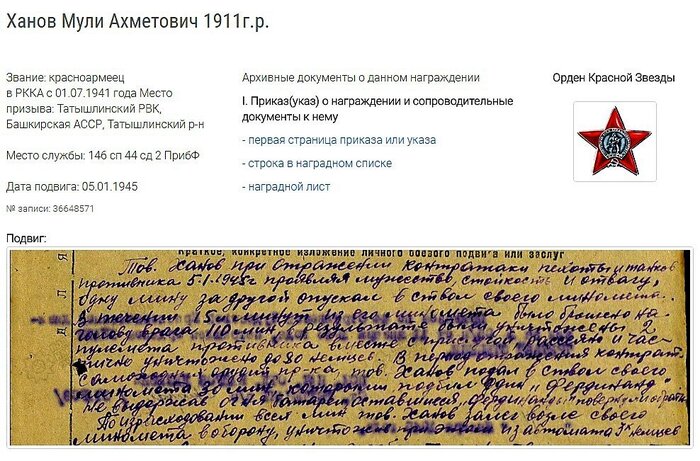 Ханов Мули Ахметович 1911г.р.
Звание: красноармеец
в РККА с 01.07.1941 года Место
призыва: Татышлинский РВК,
Башкирская АССР, Татышлинский р-н
Место службы: 146 сп 44 сд 2 ПрибФ
Дата подвига: 05.01.1945
№ записи: 36648571
Архивные документы о данном награждении
I. Приказ(указ) о награждении и сопроводительные
документы к нему
- первая страница приказа или указа
- строка в наградном списке
- наградной лист
Орден Красной Звезды
Подвиг:
Краткое, конкретное изложение личного боевого подвига или заслуг
Тов. Ханов при отражении контратаки пехоты и танков
противника 5.1.1945г проявляя мужество, стойкость и отвагу,
одну мину за другой опускал в ствол своего миномета.
В течении 15 минут из его миномета было брошено на
голову врага 110 мин, в результате были уничтожены 2
пулемета противника вместе с прислугой, рассеяно и час-
тично уничтожено до 30 немцев. В период отражения контрат.
орудий пр-ка, тов. Ханов подал в ствол своего
миномета 30 мин, которыми подбил один "Фердинанд"
не выдержав огня батареи оставшиеся "Фердинанды" повернули обратно
По израсходовании всех мин тов. Ханов залег возле своего
миномета в оборону, уничтожено при этом из автомата 3х немцев